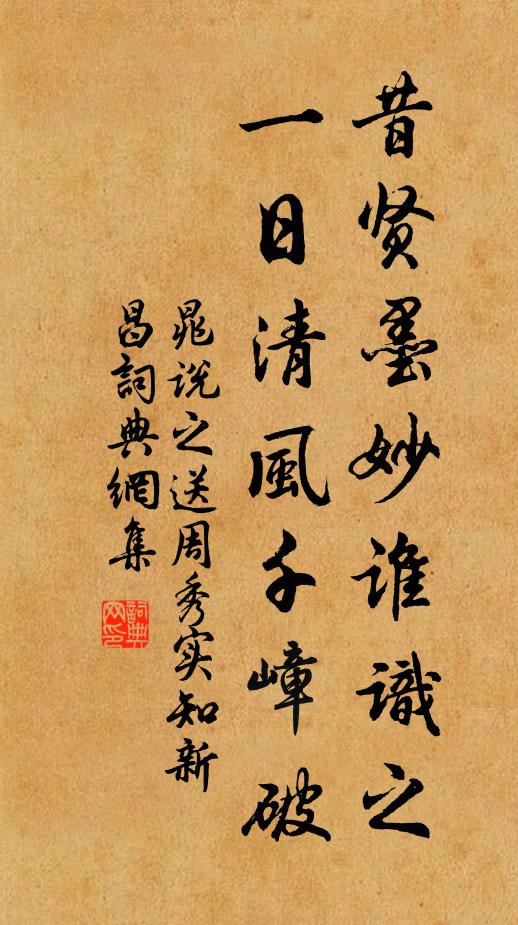 昔贤墨妙谁識之
一日清風千嶂破
晁说之送周秀实知新
昌詞典網集
詞典网印